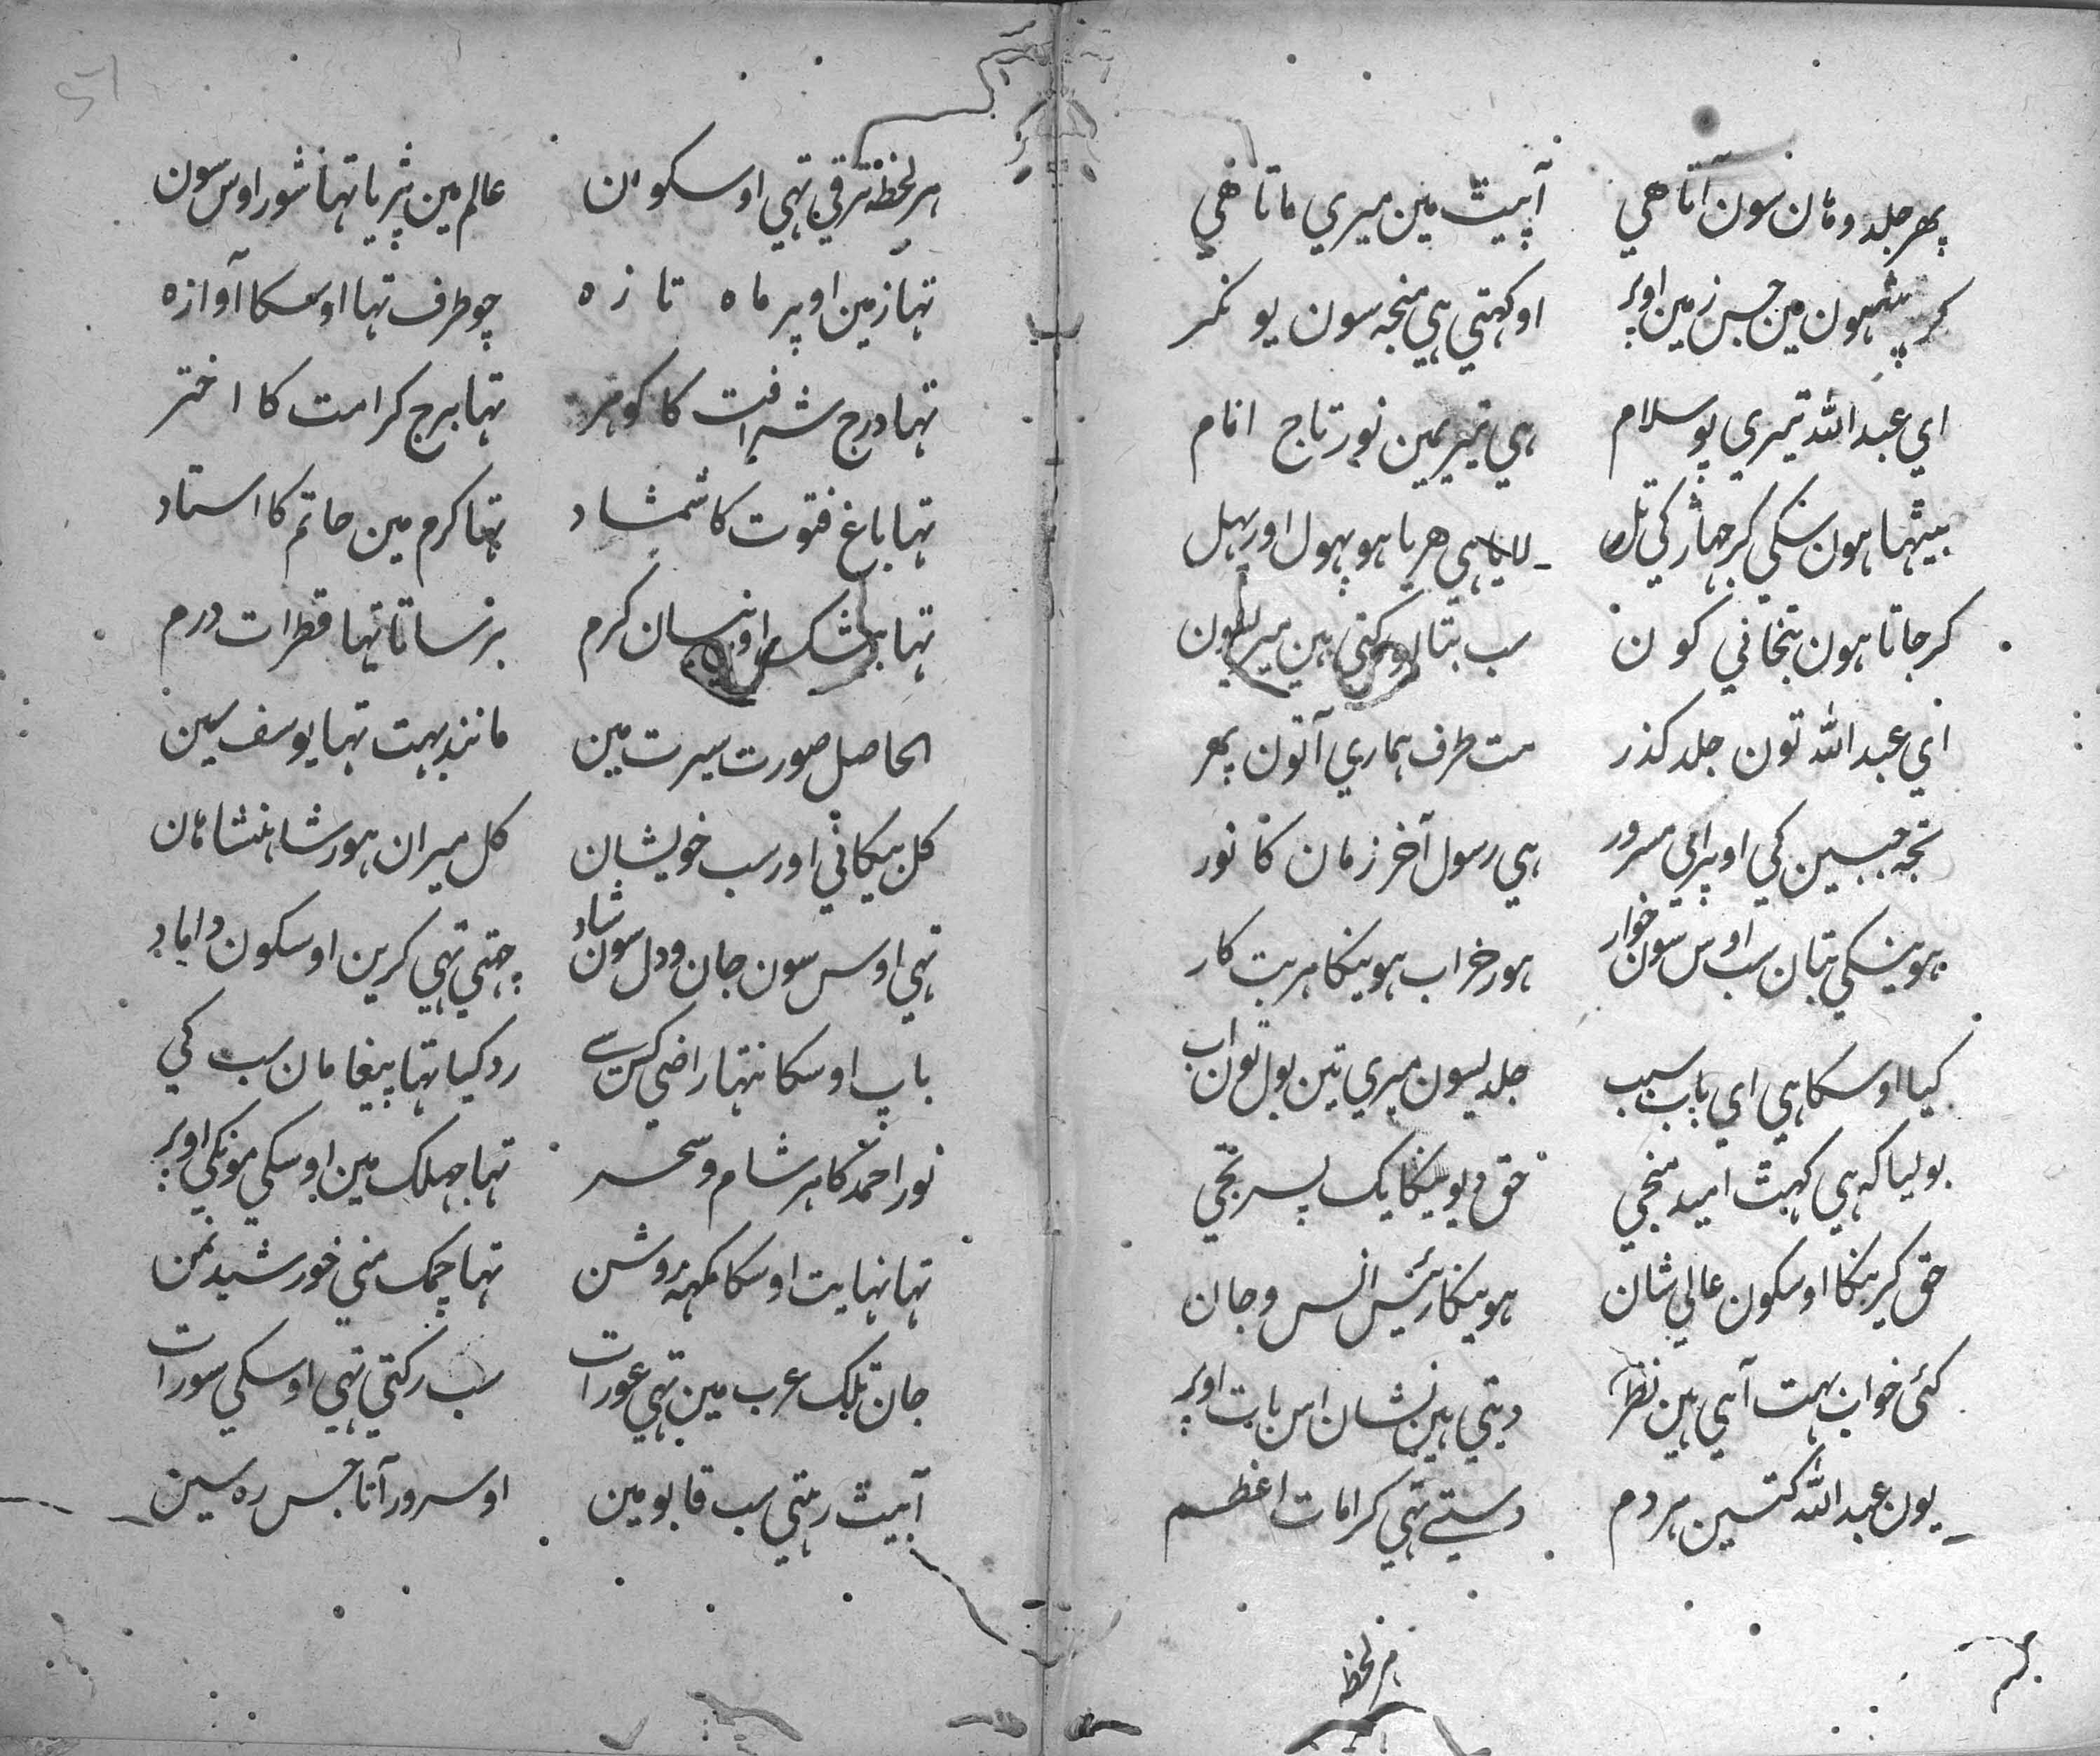 پهر جلد وهان سون آتا هي آپیٹ مین میري ماتا هي
کر بیٹهون مین جس زمین اوپر او کهتي هي منجه سون یو نکر
اي عبد الله تیري پو سلام هي تیرمین نور تاج انام
بیٹها هون سکي کر جهاڑ کي تل لایا هي هریا هو پهول اور پهل
کر جاتا هون بتخاني کون سب بتان کتي هین میرسون
اي عبد الله تون جلد گذر مت طرف هماري آتون پهر
تجه جبین کي اوپر اي سرور هي رسول آخر زمان کا نور
هوینگي بتان سب اوس سون خوار هور خراب هوینگا هر بت کار
کیا اوسکا هي اي باب سبب جلدیسون میري تین بول تون اب
بولیا که هي کهٹ امید منجي حق دیوینگا یک پسر تجي
حق کرینگا اوسکون عالي شان هوینگا رئیس انس و جان
کئی خواب بهت آهي هین نظر دیتي هین نشان اس بات اوپر
یون عبد الله کتین هر دم دستے تهي کرامات اعظم
هر لحظه
هر لحظه ترقي تهي اوسکون عالم مین پڑیا تها شور اوس سون
تها زمین اوپر ماه تازه چو طرف تها اوسکا آوازه
تها درج شرافت کا گوهر تها برج کرامت کا اختر
تها باغ فتوت کا شمشاد تها کرم مین حاتم کا استاد
تها بیشک او نیسان کرم برساتا تها قطرات درم
الحاصل صورت سیرت مین مانند بهت تها یوسف سین
کل بیگاني اور سب خویشان کل میران هور شاهنشاهان
تهي اوس سون جان و دل سون شاد چهتي تهي کرین اوسکون داماد
باپ اوسکا نتها راضي کس سے رد کیا تها پیغامان سب کي
نور احمد کا هر شام و سحر تها جهلک مین اوسکي مونکي اوپر
تها نهایت اوسکا مکهه روشن تها چمک مني خورشید نمن
جان تلک عرب مین تهي عورات سب رکتي تهي اوسکي سورات
آبیٹ رهتي سب قابو مین او سرور آتا جس ره سین